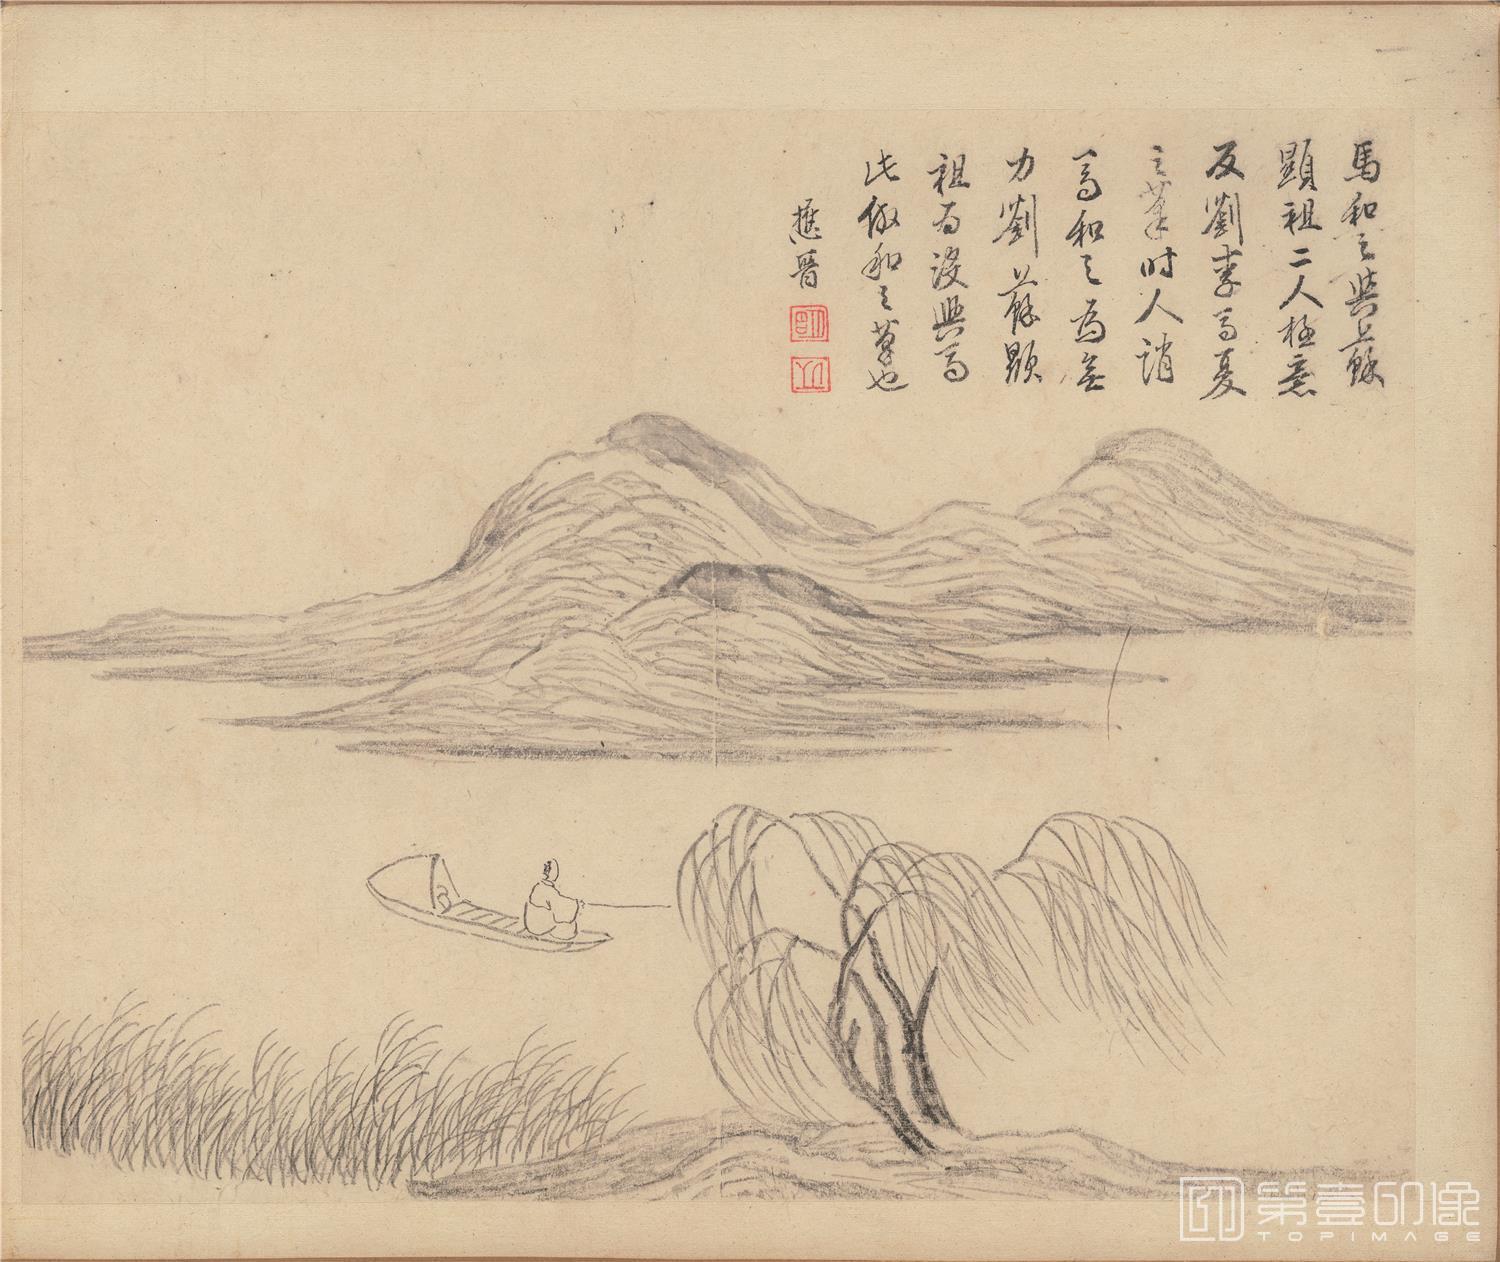 馬和之與蘇
顯祖二人極意
反劉李馬夏
之筆時人誚
馬和之為無
力劉蘇顯
祖為沒興馬
此倣和之筆也
應晉
明
第壹印像
TOPIMAGE